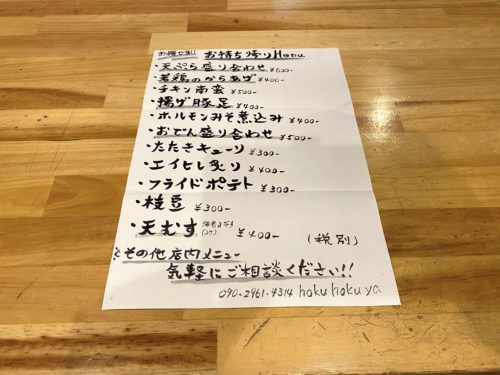 お持ち帰りMenu
・天ぷら盛り合わせ ¥500-
・若鶏のからあげ ¥400-
・チキン南蛮 ¥500-
・揚げ豚足 ¥400-
・ホルモンみそ煮込み ¥400-
・おでん盛り合わせ ¥500-
・たたきキューリ ¥300-
・エイヒレ炙り ¥400-
・フライドポテト ¥300-
・枝豆 ¥300-
・天むす ¥400-
(税別)
その他店内メニュー
気軽にご相談ください!!
090-2961-4314 hokuhokuya